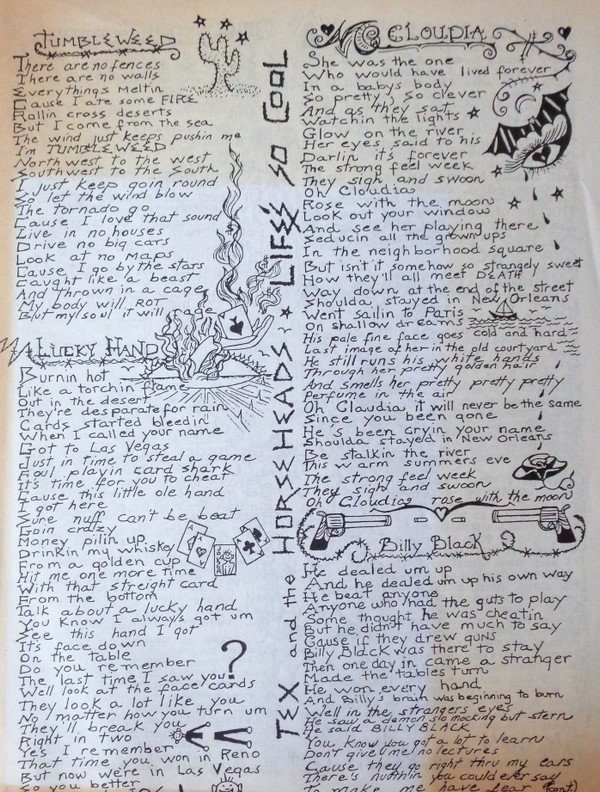 TUMBLEWEED
There are no fences
There are no walls
Everythings Meltin
Cause I ate some FIRE
Rollin cross deserts
But I come from the sea
The wind just keeps pushin me
I'm TUMBLEWEED
Northwest to the west
Southwest to the South
I just keep goin round
So let the wind blow
The tornado go
Cause I love that sound
Live in no houses
Drive no big cars
Look at no maps
Cause I go by the stars
Caught like a beast
And thrown in a cage
My body will ROT
But my soul it will
A LUCKY HAND
Burnin hot
Like a torchin flame
Out in the desert
They're desparate for rain
Cards started bleedin
When I called your name
Got to Las Vegas
Just in time to steal a game
Foul playin card shark
It's time for you to cheat
Cause this little ole hand
I got here
Sure nuff can't be beat
Goin crazy
Money pilin up
Drinkin my whiskey
From a golden cup
Hit me one more time
With that straight card
From the bottom
Talk about a lucky hand
You know I always got um
See this hand I got
It's face down
On the table
Do you remember
The last time I saw you?
Well look at the face cards
They look a lot like you
No matter how you turn um
They'll break you
Right in Two
Yes I remember
That time you won in Reno
But now were in Las Vegas
So you better
TEX and the HORSEHEADS ★ LIFE'S SO COOL
CLOUDIA
She was the one
Who would have lived forever
In a baby's body
So pretty, so clever
And as they sat
Watchin the lights
Glow on the river
Her eyes said to his
Darlin it's forever
The strong feel week
They sigh and swoon
Oh Cloudia
Rose with the moon
Look out your window
And see her playing there
Seducin all the grown ups
In the neighborhood square
But isn't it somehow so strangely sweet
How they'll all meet DEATH
Way down at the end of the street
Shoulda stayed in New Orleans
Went sailin to Paris
On shallow dreams
His pale fine face goes cold and hard
Last image of her in the old courtyard
He still runs his white hands
Through her pretty golden hair
And smells her pretty pretty pretty
Perfume in the air
Oh Claudia it will never be the same
Since you been gone
He's been cryin your name
Shoulda stayed in New Orleans
Be stalkin the river
This warm summers eve
The strong feel week
They sigh and swoon
Oh Cloudia rose with the moon
Billy Black
He dealed um up
And he dealed um up his own way
He beat anyone
Anyone who had the guts to play
Some thought he was cheatin
But he didn't have much to say
Cause if they drew guns
Billy Black was there to stay
Then one day in came a stranger
Made the tables turn
He won every hand
And Billy's brain was beginning to burn
Well in the strangers eyes
He saw a demon slo mocking but stern
He said BILLY BLACK
You know you got a lot to learn
Don't give me no lectures
Cause they go right thru my ears
There's nuthin you could ever say
To make me have fear (cont)